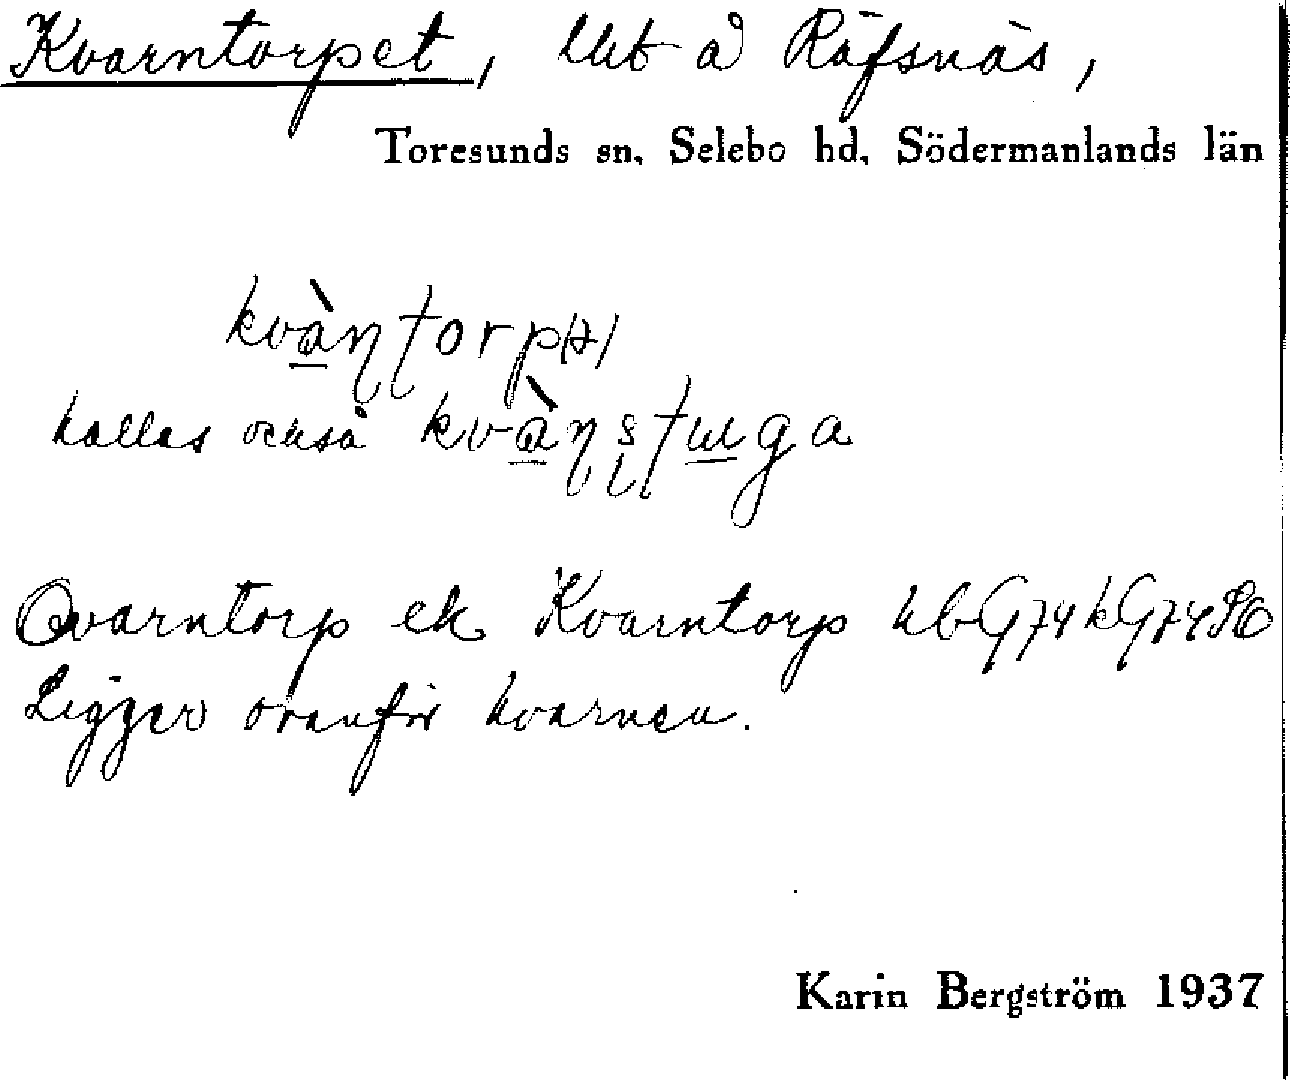 Kvarntorpet, lht å Räfsnäs,
Toresunds sn. Selebo hd. Södermanlands län
kvàn̨torp(ə)
kallas också kvàn̨stɯga
Qvarntorp ek Kvarntorp hbG74 kG74 SE
Ligger ovanför kvarnen.
Karin Bergström 1937